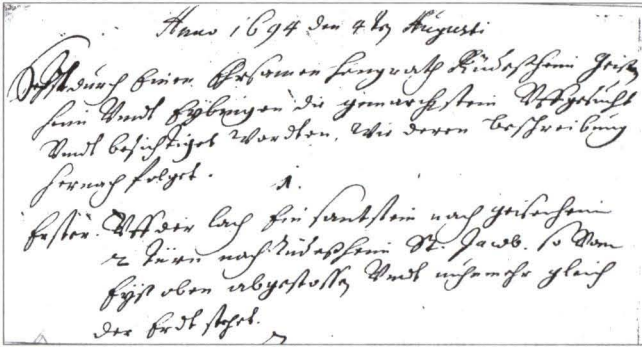 Anno 1694 den 4ten Augusti
Seyst durch Einen Ehrsamen Haingrath Rüdeßheim Geisen
heim Undt Eybingen die gemarckstein Uffgesucht
Undt besichtiget wordten, wie deren beschreibung
hernach folget.
1.
Erster. Uff der lach Ein santstein nach geisenheim
2 Türn nach Rüdeßheim St. Jacob. so Vom
Eyß oben abgestossen Undt nuhnmehr gleich
der Erdt stehet.